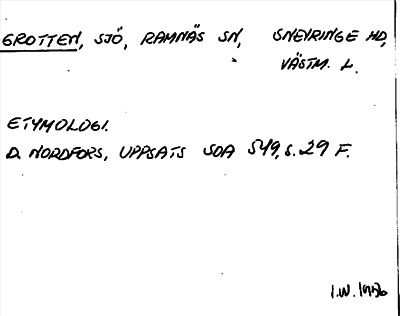 GROTTEN, SJÖ, RAMNÄS SN, SNEVRINGE HD,
VÄSTM. L.
ETYMOLOGI.
D. NORDFORS, UPPSATS SOA 549, S. 29 F.
I.W. 1986